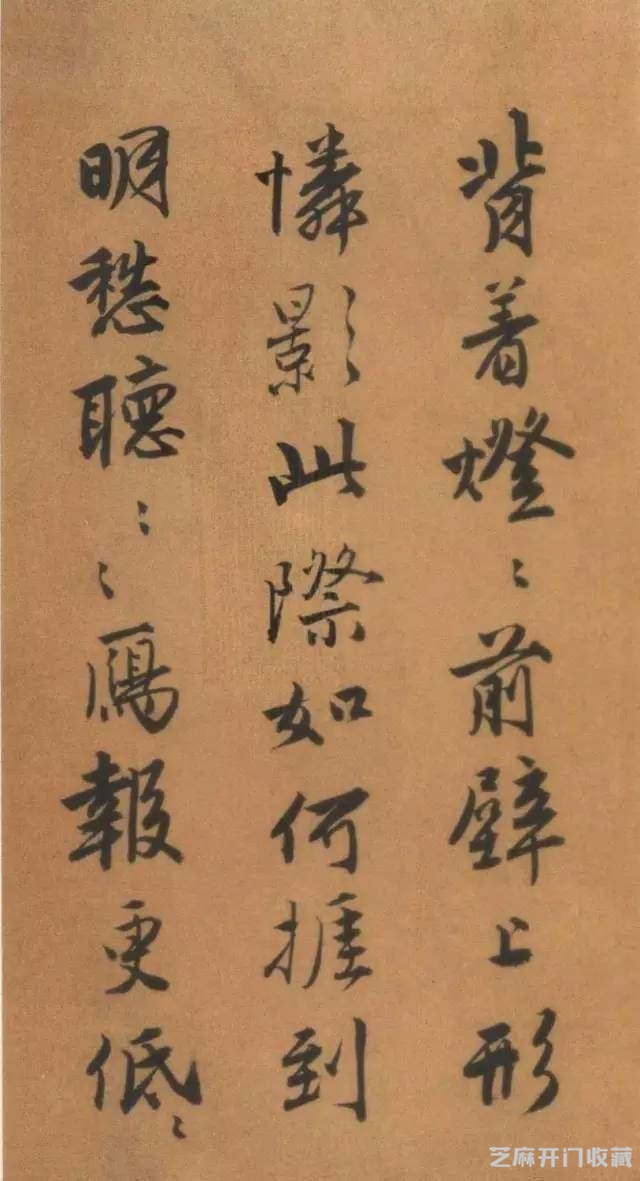 背着燈〻前壁上形
憐影此際如何捱到
明愁聽〻〻鴈報更
低〻
芝麻开门收藏